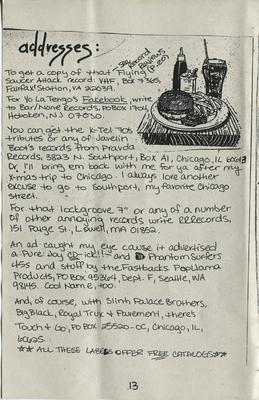 addresses:
See Record
Reviews
(P. 20)
To get a copy of that Flying
Saucer Attack record: VHF, Box 7365,
Fairfax Station, VA 22039.
For Yo La Tengo's Facebook, write
to Bar/None Records, PO Box 1704,
Hoboken, NJ 07030.
You can get the K-Tel 70s
tributes or any of Javelin
Boot's records from Pravda
Records, 3823 N. Southport, Box A1, Chicago, IL 60613
Or I'll bring em back with me for ya after my
X-mas trip to Chicago. I always love another
excuse to go to Southport, my favorite Chicago
street.
For that lockgroove 7" or any of a number
of other annoying records write RRRecords,
151 Paige St, Lowell, MA 01852.
An ad caught my eye cause it advertised
a Pure Joy CD - ick!! - and Phantom Surfers
45s and stuff by the Fastbacks PopLlama
Products, PO Box 95364, Dept. F, Seattle, WA
98145. Cool Name, too.
And, of course, with Slint, Palace Brothers,
Big Black, Royal Trux & Pavement, there's
Touch & Go, PO Box 25520-OC, Chicago, IL,
60625.
** ALL THESE LABELS OFFER FREE CATALOGS **
13